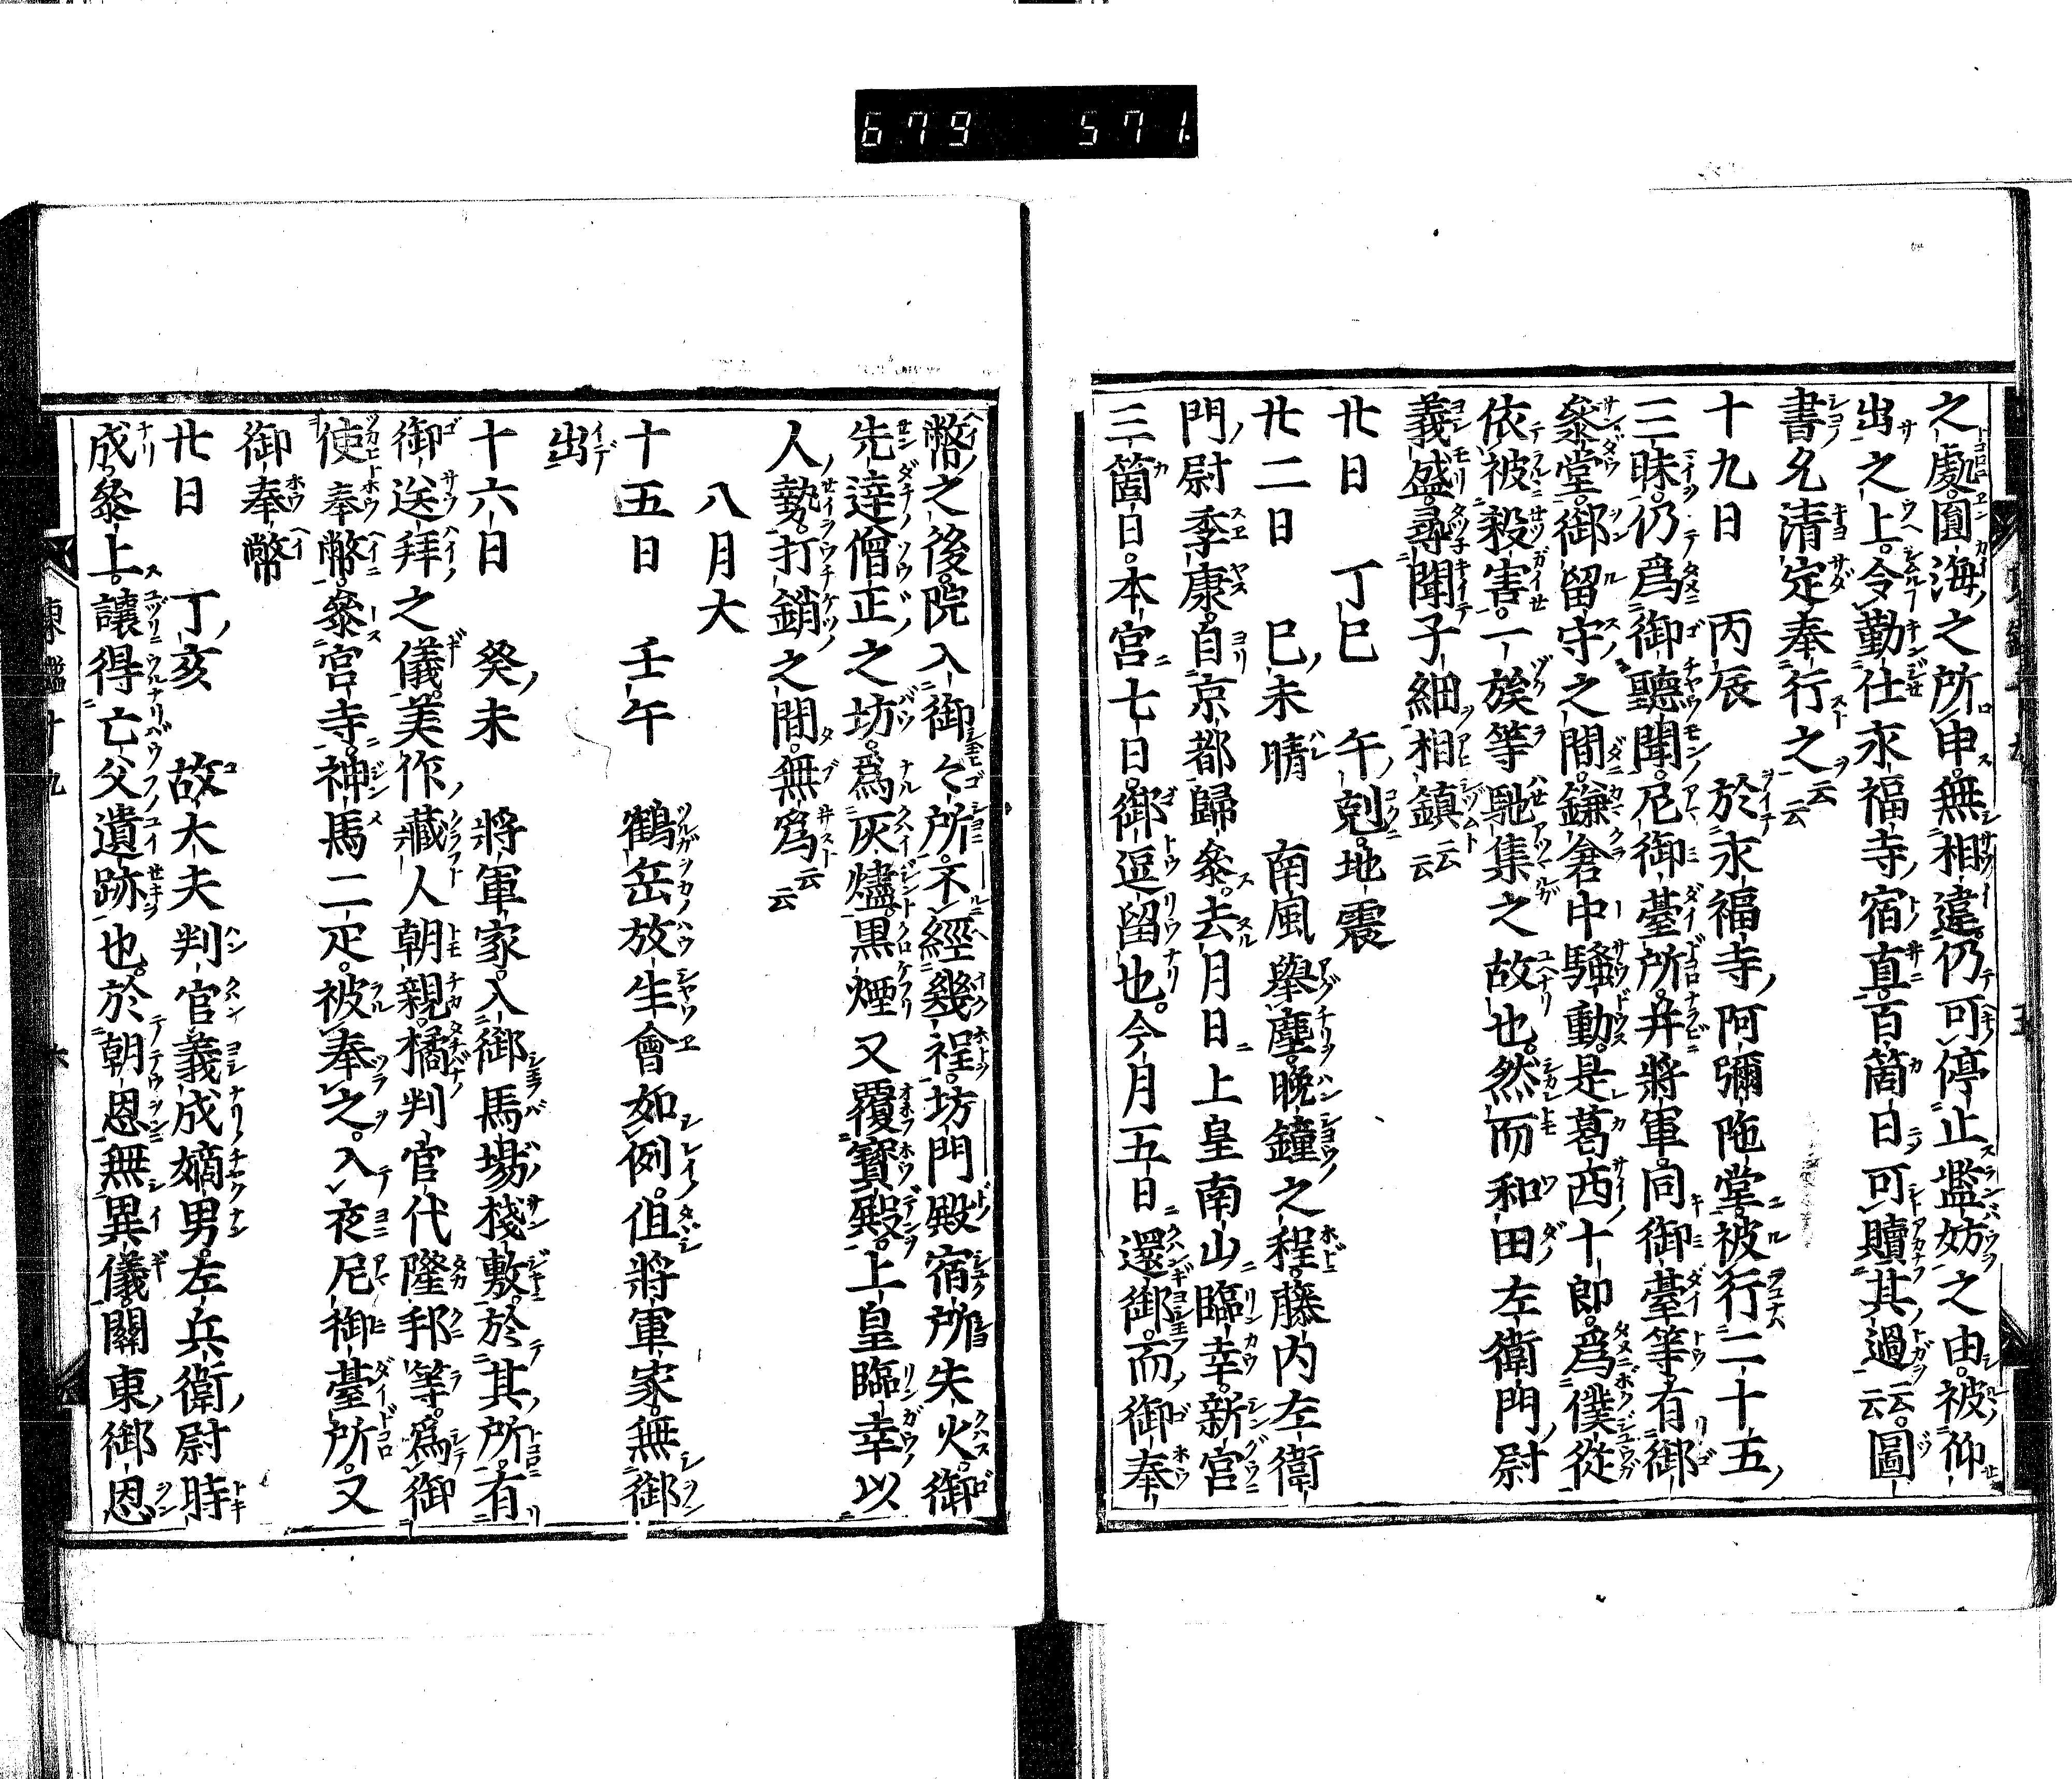 679 571
之處圓海之所申無相違仍可停止濫妨之由被仰
出之上令勤仕永福寺宿直百箇日可贖其過云云圖
書允清定奉行之云云
十九日 丙辰 於永福寺阿彌陁堂被行二十五
三昧仍爲御聽聞尼御臺所并將軍同御臺等有御
參堂御留守之間鎌倉中騷動是葛西十郎爲僕從
依被殺害一族等馳集之故也然而和田左衛門尉
義盛尋聞子細相鎮云云
廿日 丁巳 午剋地震
廿二日 巳未 晴 南風擧塵晩鐘之程藤内左衛
門尉季康自京都歸參去月日上皇南山臨幸新宮
三箇日本宮七日御逗留也今月五日還御而御奉
幣之後院入御々所不經幾程坊門殿宿所失火御
先達僧正之坊爲灰燼黒煙又覆寳殿上皇臨幸以
人勢打銷之間無爲云云
八月大
十五日 壬午 鶴岳放生會如例但將軍家無御
出
十六日 癸未 將軍家入御馬場棧敷於其所有
御送拜之儀美作藏人朝親橘判官代隆邦等爲御
使奉幣參宮寺神馬二疋被奉之入夜尼御臺所又
御奉幣
廿日 丁亥 故大夫判官義成嫡男左兵衛尉時
成參上讓得亡父遺跡也於朝恩無異儀關東御恩
東鑑十九 六